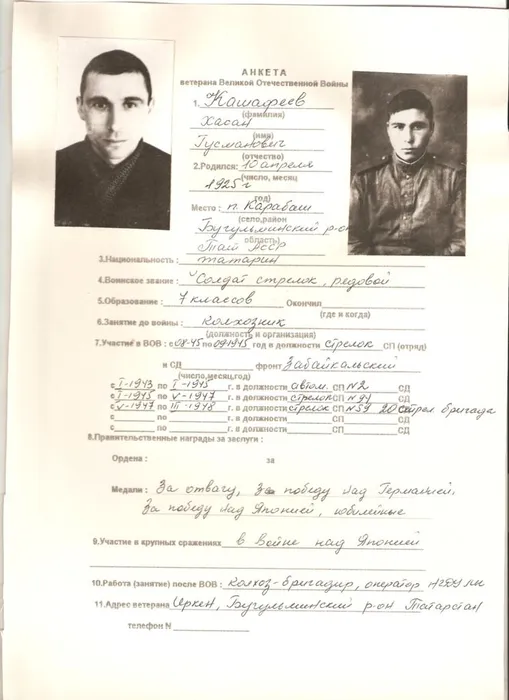 АНКЕТА
ветерана Великой Отечественной Войны
1. Кашафеев
(фамилия)
Хасан
(имя)
Гусманович
(отчество)
2.Родился: 10 апреля
(число, месяц
1925 г
год)
Место : п. Карабаш
(село,район
Бугульминский р-он
область)
Тат АССР
3.Национальность : татарин
4.Воинское звание : Солдат стрелок, редовой
5.Образование : 7 классов Окончил
(где и когда)
6.Занятие до войны : колхозник
(должность и организация)
7.Участие в ВОВ : с 08.45 по 09.1945 год в должности стрелок СП (отряд)
и СД фронт Забайкальский
(число,месяц,год)
с I-1943 по I-1945 г. в должности автом. СП N2 СД
с I-1945 по V-1947 г. в должности стрелок СП N94 СД
с V-1947 по III-1948 г. в должности стрелок СП N59 20 стрел бригада
с по г. в должности СП СД
с по г. в должности СП СД
8.Правительственные награды за заслуги :
Ордена : за
Медали : За отвагу, За победу над Германией,
За победу над Японией, юбилейные
9.Участие в крупных сражениях в Войне над Японией
10.Работа (занятие) после ВОВ : колхоз-бригадир, оператор
11.Адрес ветерана Иркен, Бугульминский р-он Татарстан
телефон N